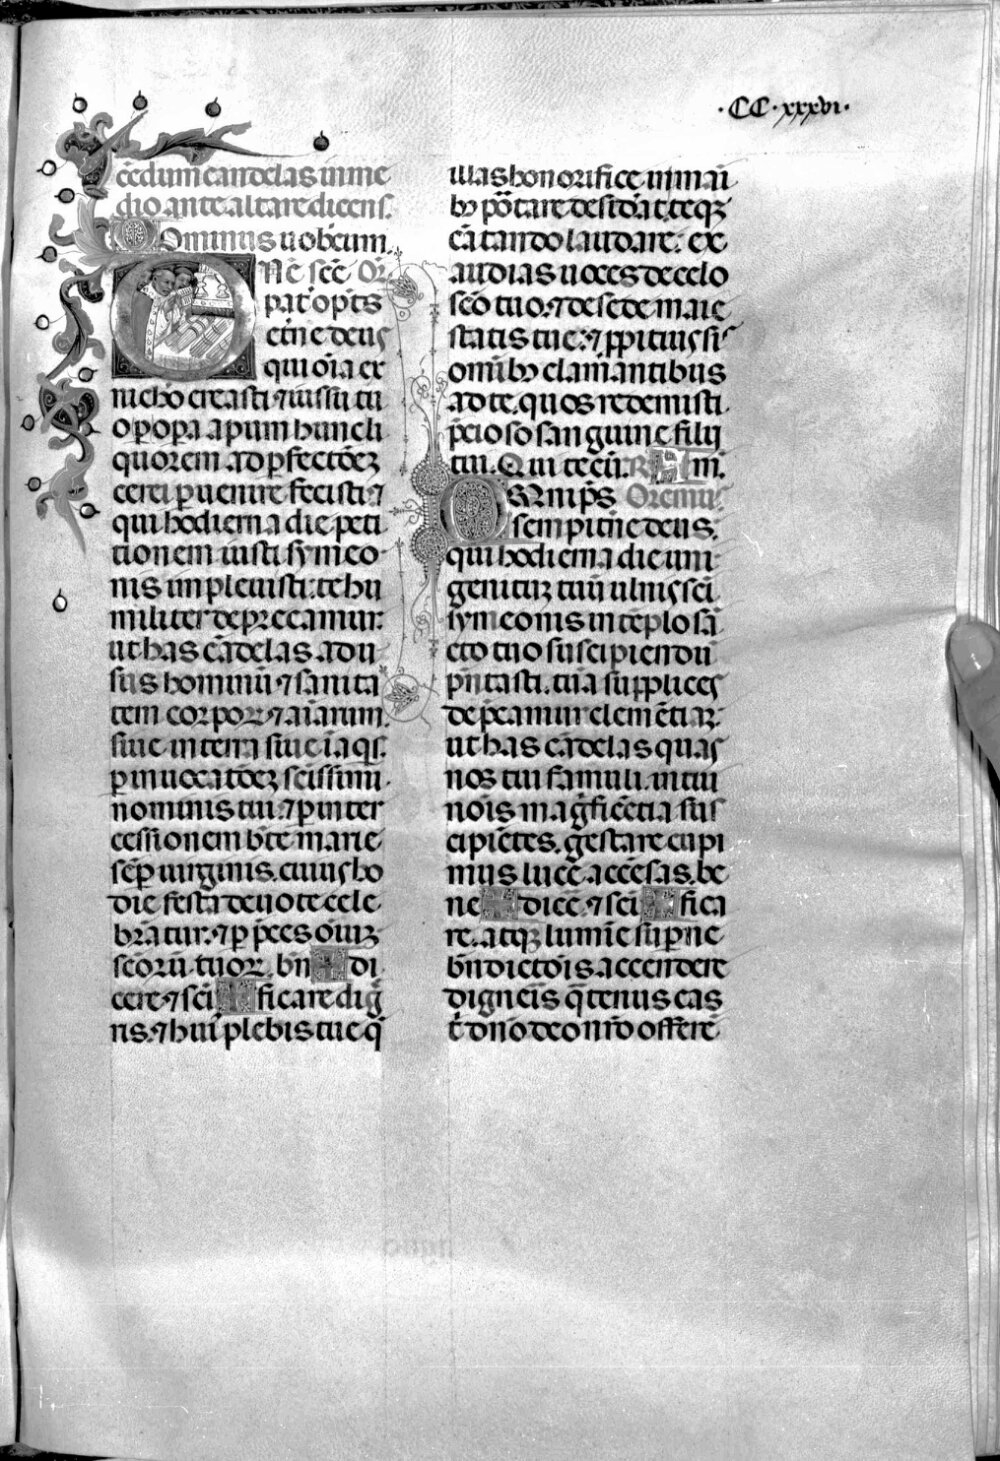 ·CC·xxxvi·
cẽdum candelas in me
dio ante altare dicens.
Dominus uobcum.
Dñe scẽ Or̃.
pat̃ opt̃s
et̃ne deus
qui oĩa ex
nichõ creasti ⁊ iussu tu
o p̱ op̱a apum hunc li
quorem ad p̱fectõeꝫ
cerei p̱uenire fecisti ⁊
qui hodierna die peti
tionem iusti symeo
nis impleuisti: te hu
militer deprecamur.
ut has cãdelas ad u
sus hominũ ⁊ sanita
tem corpoꝝ ⁊ aĩarum.
siue in terra siue ĩ aq̃s.
p̱ inuocatõeꝫ scĩssimi
nominis tui. ⁊ p̱ inter
cessionem bt̃e marie
semp̱ uirginis. cuius ho
die festa deuote cele
brãtur. ⁊ p̱ p̃ces oĩuꝫ
scõrũ tuoꝝ. bñ✠di
cere ⁊ scĩ✠ficare dig̃
ris. ⁊ hui᾽ plebis tue q̃
illas honorifice in mãi
bꝰ põtare desid̃at. teqꝫ
cãtando laudare: ex
audias uoces de celo
scõ tuo. ⁊ de sede maie
statis tue: ⁊ p̱pitius sis
omĩbꝰ clamantibus
ad te. quos redemisti
p̃cioso sanguine filij
tui. Qui tecũ. R Am̃.
Omnip̃s Oremus
sempit̃ne deus.
qui hodierna die uni
genituꝫ tuũ ulnis scĩ
symeonis in tẽplo sã
cto tuo suscipiendũ
p̃ntasti. tuã supplices
dep̃camur clemẽtiaꝫ.
ut has cãdelas quas
nos tui famuli. in tui
nõis mag̃ficẽtia sus
cipiẽtes. gestare cupi
mus lucẽ accẽsas. be
ne✠dicẽ. ⁊ scĩ✠fica
re. atqꝫ lumĩe sup̱ne
bñdictõis accendere
digneris q̃tenus eas
t̃ dño deo nr̃o offerẽ